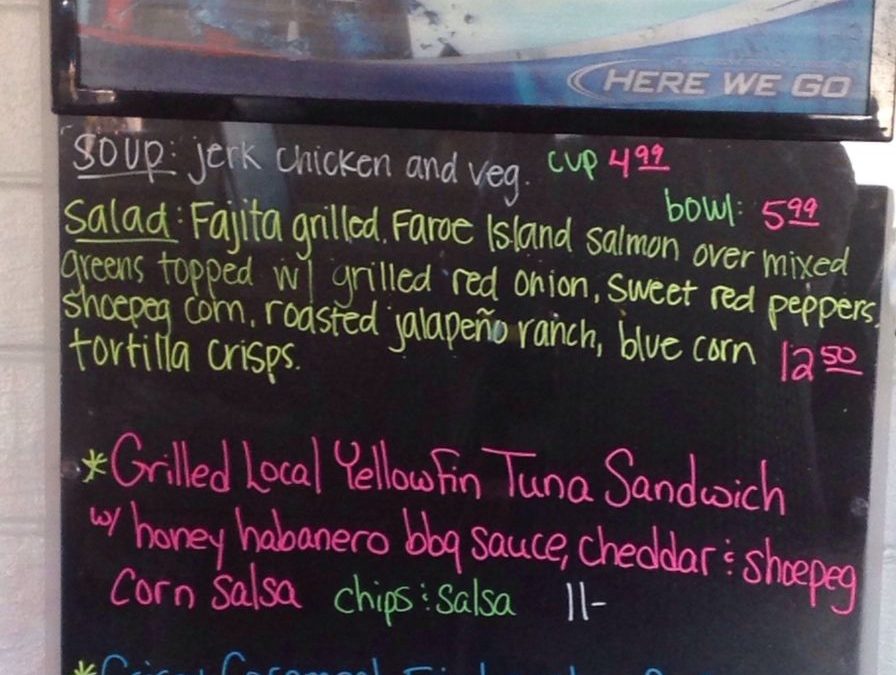 HERE WE GO
SOUP: jerk chicken and veg. cup 4.99
bowl: 5.99
Salad: Fajita grilled. Faroe Island salmon over mixed
greens topped w/ grilled red onion, sweet red peppers,
shoepeg corn, roasted jalapeño ranch, blue corn 12.50
tortilla crisps.
*Grilled Local Yellowfin Tuna Sandwich
w/ honey habanero bbq sauce, cheddar & shoepeg
corn salsa chips & salsa 11-